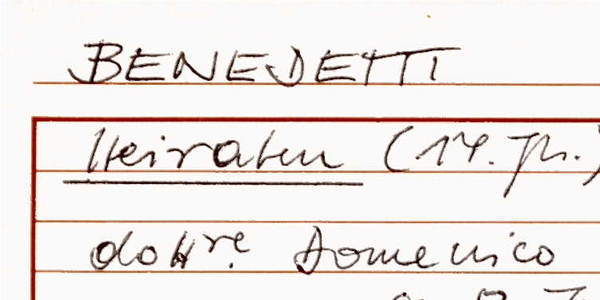 BENEDETTI
Heiraten (17. Jh.)
dott.re Domenico